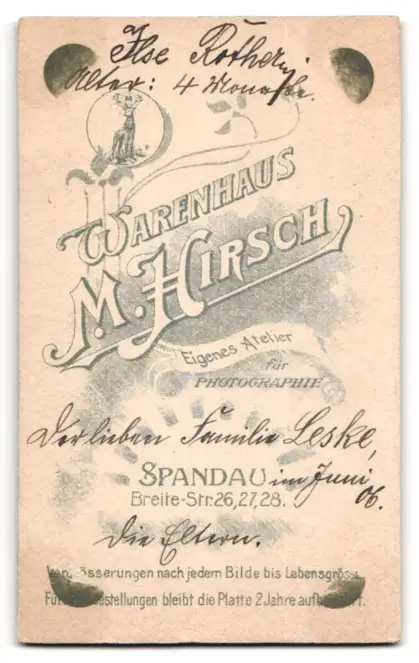 Ilse Rother
Alter: 4 Monate.
WARENHAUS
M. HIRSCH
Eigenes Atelier
für
PHOTOGRAPHIE
Der lieben Familie Leske,
SPANDAU im Juni
Breite-Str. 26, 27, 28. 06.
Die Eltern.
nach jedem Bilde bis Lebensgrösse
bleibt die Platte 2 Jahre